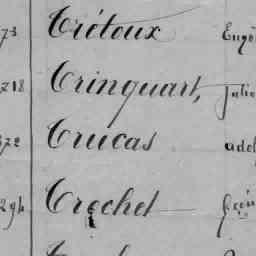 73 Crétoux Eugè
218 Crinquart, Julie
372 Crucas adol
294 Crochet